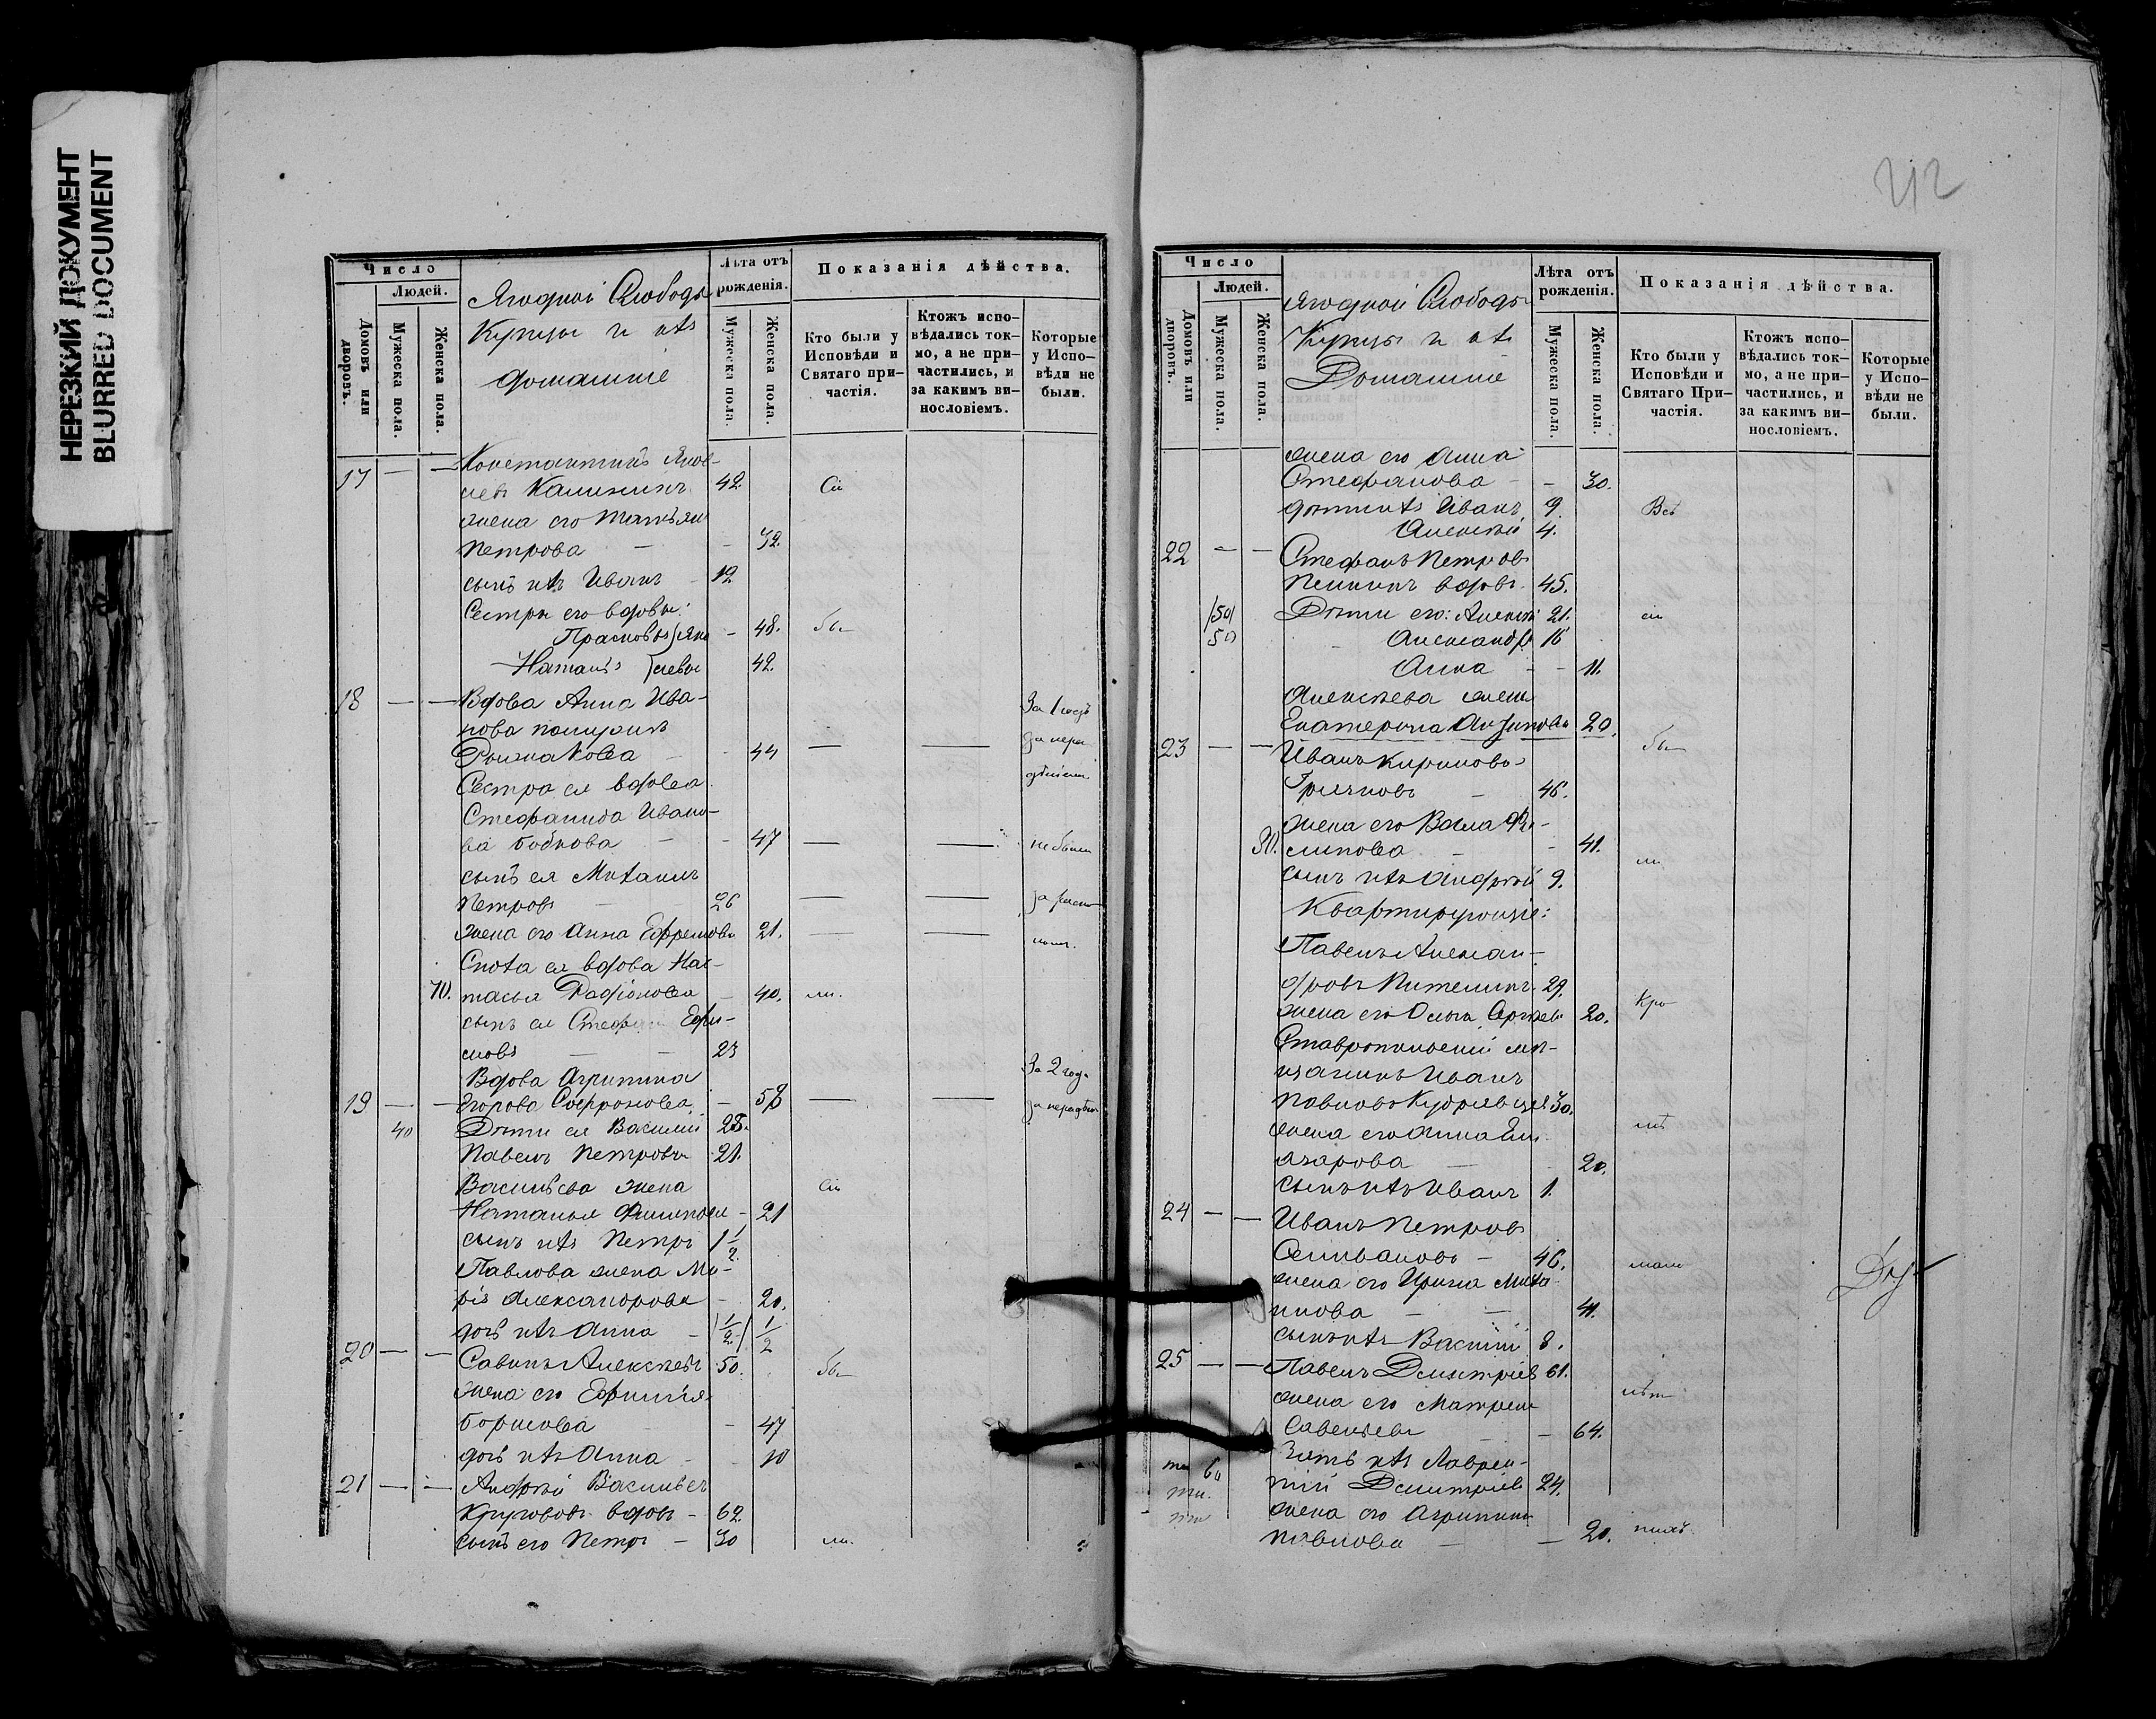 НЕРЕЗКИЙ ДОКУМЕНТ
BLURRED DOCUMENT
Число
Людей.
Домовъ или дворовъ.
Мужеска пола.
Женска пола.
Ягодной Слободы
Купцы и ихъ
домашніе
Лѣта отъ рожденія.
Мужеска пола.
Женска пола.
Показанія дѣйства.
Кто были у Исповѣди и Святаго причастія.
Ктожъ исповѣдались токмо, а не причастились, и за какимъ винословіемъ.
Которые у Исповѣди не были.
17 — — Константинъ Яков-
левъ Калининъ 42 Сіи
жена его Татьяна
Петрова — - 32.
сынъ ихъ Иванъ - 12
Сестры его вдовы:
Прасковья } Яко - 48. бы
Наталья } левы 42.
18 — — Вдова Анна Ива- За 1 годъ
нова
- 44 — — за нера
Сестра ея вдова дѣніем
Стефанида Ивано-
ва Бобкова — - 47 — — не были
сынъ ея Михаилъ
Петровъ — 26 — —
жена его Анна Ефремова 21. — —
Сноха ея вдова Нас-
70. тасья Родіонова — 40. ли.
сынъ ея Ефи-
мовъ — — 23
Вдова Агрипина За 2 года
19 — — Егорова Софронова — 58 — — за нерадѣн
40 Дѣти ея Василій 28.
Павелъ Петровы 21.
Васильева жена Сіи
Наталья Филипова - 21
сынъ ихъ Петръ 1 1/2
Павлова жена Ма-
рія Александрова - 20.
дочь ихъ Анна - 1/2 1/2
20 — — Савинъ Алексѣевъ 50. бы
жена его Ефимія
Борисова - 47
дочь ихъ Анна - 10
21 — — Андрей Васильевъ
Круговъ вдовъ - 62
сынъ его Петръ - 30 ли.
212
Число
Людей.
Домовъ или дворовъ.
Мужеска пола.
Женска пола.
Ягодной Слободы
Купцы и ихъ
Домашніе
Лѣта отъ рожденія.
Мужеска пола.
Женска пола.
Показанія дѣйства.
Кто были у Исповѣди и Святаго Причастія.
Ктожъ исповѣдались токмо, а не причастились, и за какимъ винословіемъ.
Которые у Исповѣди не были.
жена его Анна
Стефанова - - 30.
дѣти ихъ Иванъ 9. Всѣ
Алексѣй 4.
22 — — Стефанъ Петровъ
вдовъ. 45.
50 Дѣти его: Алексѣй 21. сіи
50 Александръ 16
Анна — - 11.
Алексѣева жена
Екатерина 20.
23 — — Иванъ Кириловъ бы
— 46.
жена его
30. липова — - 41. ли
сынъ ихъ Андрей 9.
Квартирующіе:
Павелъ Алексан-
дровъ 29.
жена его Ольга Сергѣев 20. Кро
Ставропольскій мѣ-
щанинъ Иванъ
Павловъ Кудрявцевъ 30.
жена его Анна Ели- мѣ
азарова — - 20.
сынъ ихъ Иванъ 1.
24 — — Иванъ Петровъ
Селивановъ - 46.
жена его Ирина Миха-
илова — — 41.
сынъ ихъ Василій 8.
25 — — Павелъ Дмитріевъ 61.
жена его Матрена
Савельева — 64.
60 Зять ихъ Лаврен-
тій Дмитріевъ 24.
жена его Агрипина
Павлова — — 20.